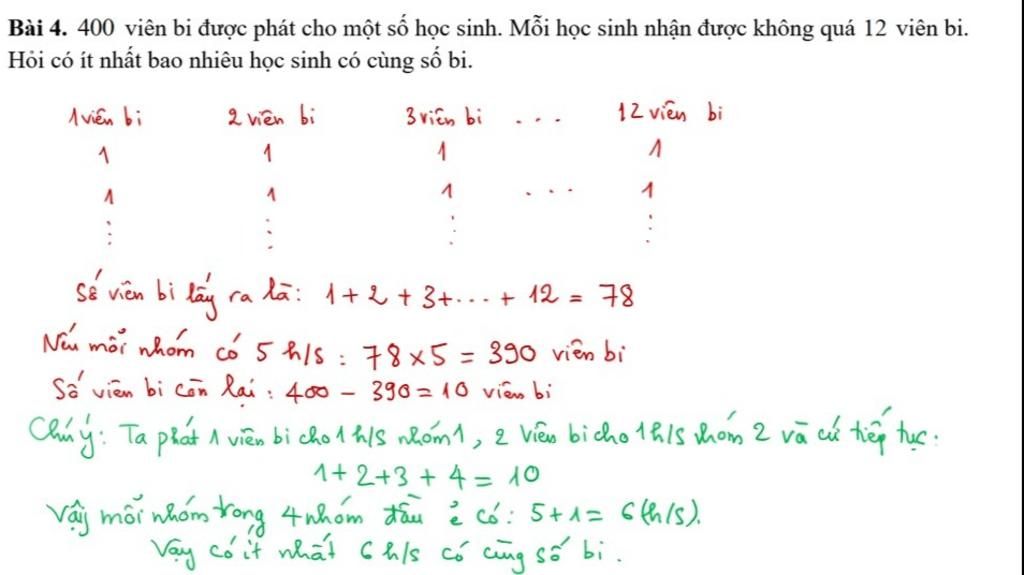 Bài 4. 400 viên bi được phát cho một số học sinh. Mỗi học sinh nhận được không quá 12 viên bi.
Hỏi có ít nhất bao nhiêu học sinh có cùng số bi.
1 viên bi 2 viên bi 3 viên bi . . . 12 viên bi
1 1 1 1
1 1 1 . . . 1
⋮ ⋮ ⋮ ⋮
Số viên bi lấy ra là: 1 + 2 + 3 + ... + 12 = 78
Nếu mỗi nhóm có 5 h/s : 78 × 5 = 390 viên bi
Số viên bi còn lại : 400 - 390 = 10 viên bi
Chú ý: Ta phát 1 viên bi cho 1 h/s nhóm 1, 2 viên bi cho 1 h/s nhóm 2 và cứ tiếp tục.
1 + 2 + 3 + 4 = 10
Vậy mỗi nhóm trong 4 nhóm đầu có : 5 + 1 = 6 (h/s).
Vậy có ít nhất 6 h/s có cùng số bi .